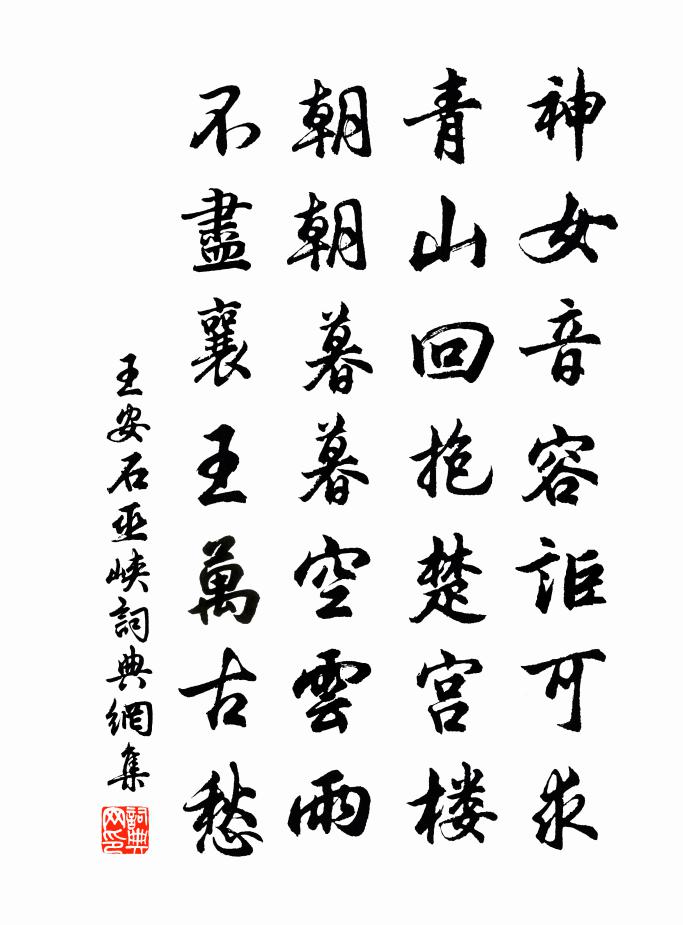 神女音容詎可求
青山回抱楚宫楼
朝朝暮暮空雲雨
不盡襄王萬古愁
王安石巫峽詞典網集
詞典网印